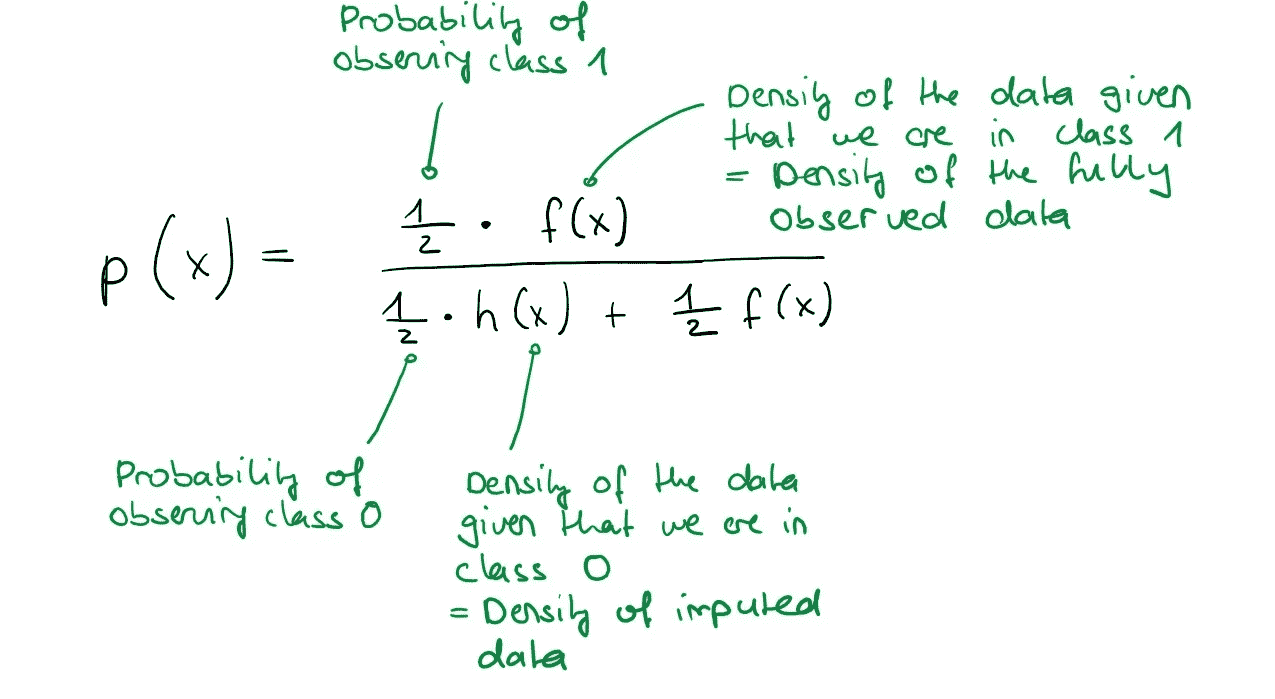 Probability of
observing class 1
Density of the data given
that we are in class 1
= Density of the fully
observed data
p(x) = \frac{\frac{1}{2} \cdot f(x)}{\frac{1}{2} \cdot h(x) + \frac{1}{2} f(x)}
Probability of
observing class 0
Density of the data
given that we are in
class 0
= Density of imputed
data